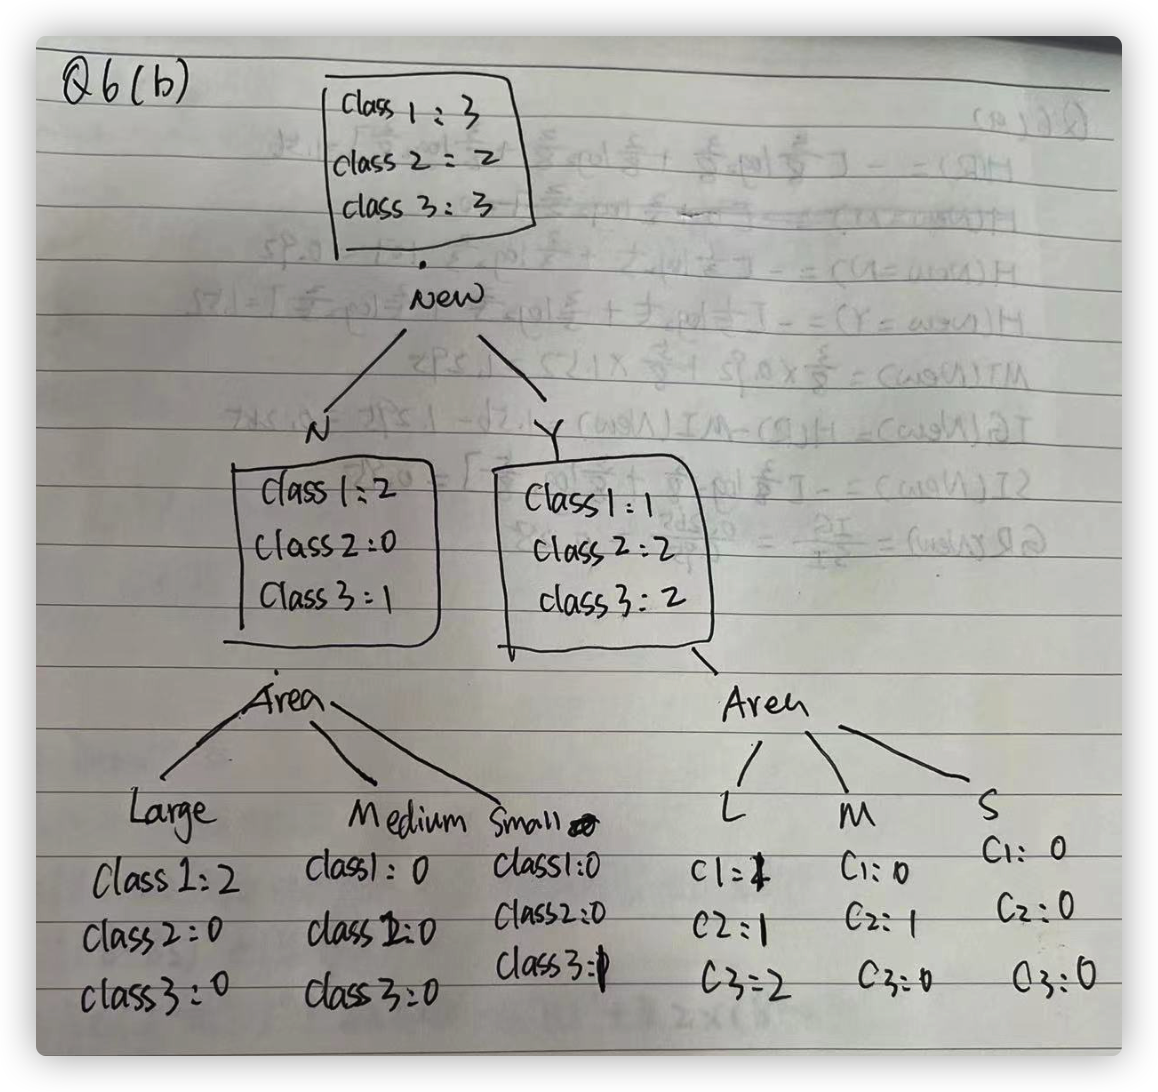 Q6(b)
Class 1: 3
class 2 = 2
class 3: 3
New
N Y
Class 1: 2
Class 2: 0
Class 3: 1
Class 1: 1
Class 2: 2
class 3: 2
Area Area
Large Medium Small L M S
Class 1: 2
Class 2: 0
class 3: 0
Class1: 0
class 2: 0
class 3: 0
Class1: 0
Class2: 0
Class3: 1
C1: 1
C2: 1
C3: 2
C1: 0
C2: 1
C3: 0
C1: 0
C2: 0
C3: 0